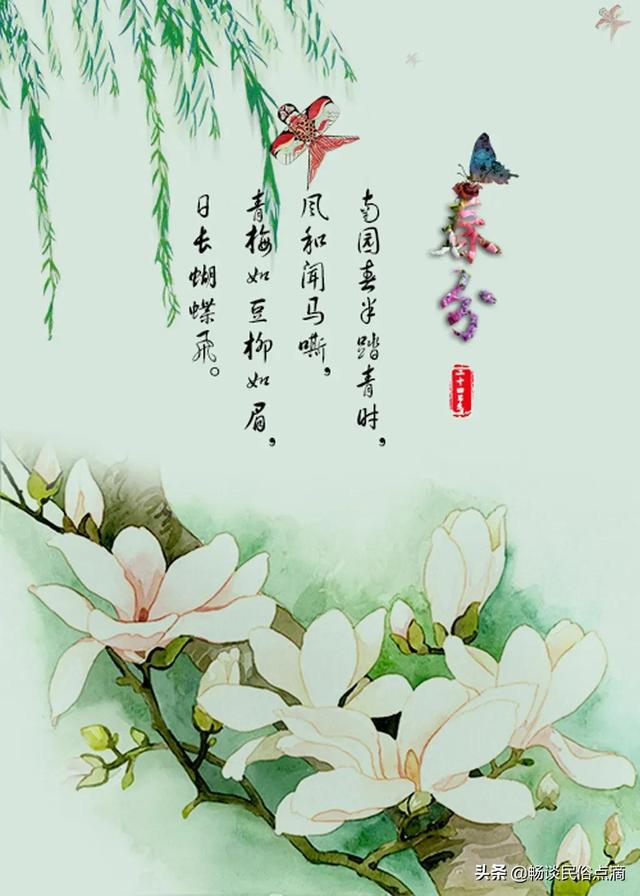 春分
二十四节气
南园春半踏青时，
风和闻马嘶，
青梅如豆柳如眉，
日长蝴蝶飞。
头条 @畅谈民俗点滴